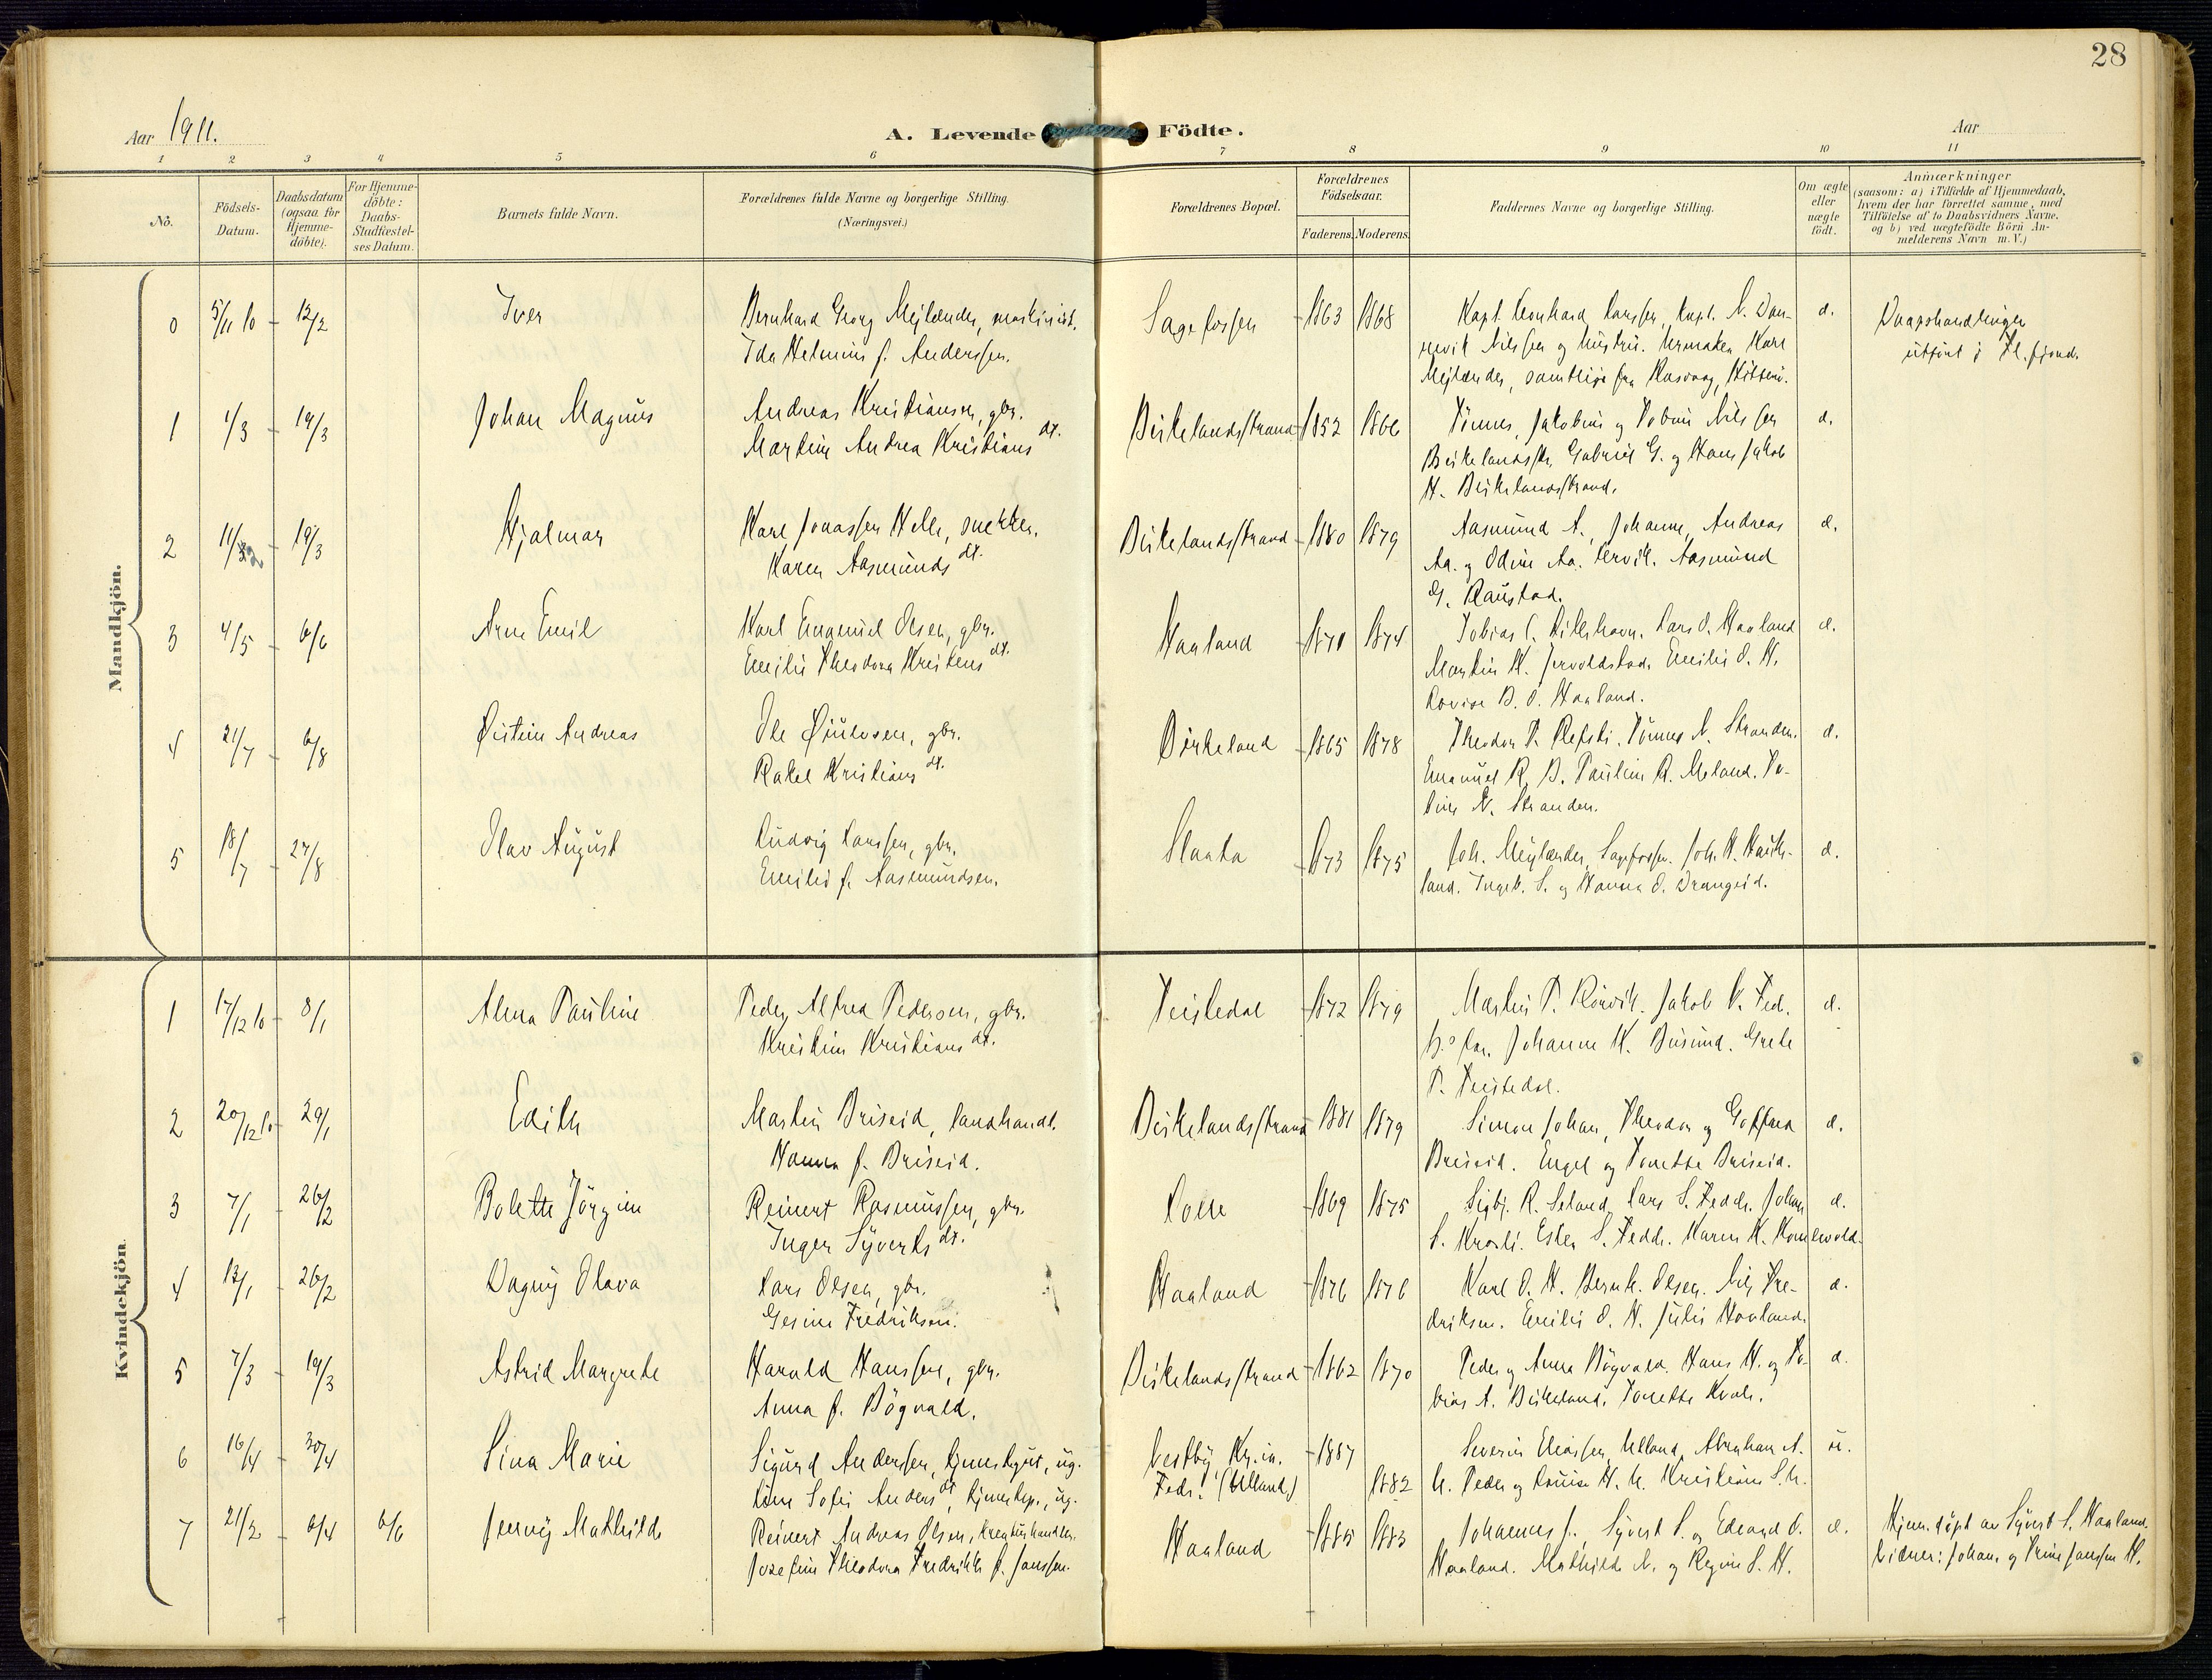 28
Aar 1911.
A. Levende Födte.
Aar
1 2 3 4 5 6 7 8 9 10 11
No.
Födsels-
Datum.
Daabsdatum
(ogsaa for
Hjemme-
döbte).
For Hjemme-
döbte:
Daabs-
Stadfæstel-
ses Datum.
Barnets fulde Navn.
Forældrenes fulde Navne og borgerlige Stilling.
(Næringsvei.)
Forældrenes Bopæl.
Forældrenes
Födselsaar.
Faderens. Moderens.
Faddernes Navne og borgerlige Stilling.
Om ægte
eller
uægte
født.
Anmærkninger
(saasom: a) i Tilfælde af Hjemmedaab,
hvem der har forrettet samme, med
Tilföielse af to Daabsvidners Navne.
og b) ved uægtefödte Börn An-
melderens Navn m. V.)
Mandkjön.
0 5/11 10 12/2 Iver Bernhard Georg Mejlænder, maskinist. Sagefossen 1863 1868 Kapt. Leonhard Larssen, Kapt. N. Dan- æ. Daapshandlingen
Ida Helmine f. Anderssen. nevik Nilssen og hustru. Urmaker Karl utført i Fl. fjord.
Mejlænder, samtlige fra
1 1/3 19/3 Johan Magnus Andreas Kristiansen, gbr. Birkelandsstrand 1852 1866 Tönnes, Jakobine og Tobine Nilssen æ.
Martine Andrea Kristiansdt. Birkelandsstr. Gabriel G. og Hans Jakob
H. Birkelandsstrand.
2 11/2 19/3 Hjalmar Karl Jonassen Helle, snekker. Birkelandsstrand 1880 1879 Aasmund A., Johanne, Andreas æ.
Karen Aasmundsdt. Aa. og Odine Aa. Ervik. Aasmund
G. Raustad.
3 4/5 6/6 Arne Emil Karl Emanuel Olsen, gbr. Haaland 1871 1874 Tobias Rikshavn. Lars O. Haaland æ.
Emilie Theodora Kristensdt. Martin H. Jervoldstad. Emilie O. H.
Lovise B. O. Haaland.
4 21/7 6/8 Øistein Andreas Ole Øiulvsen, gbr. Birkeland 1865 1878 Theodor P. Refsti. Tönnes N. Stranden. æ.
Rakel Kristiansdt. Emanuel R. B. Pauline R. Meland. To-
bine N. Stranden.
5 18/7 27/8 Olav August Ludvig Larssen, gbr. Slaata 1873 1875 Joh. Mejlænder, Sagefossen. Joh. H. Hauk- æ.
Emilie f. Aasmundsen. land. Ingeb. S. og Hanna O. Drangeid.
Kvindekjön.
1 17/12 10 8/1 Alma Pauline Peder Alfred Pedersen, gbr. Teistedal 1872 1879 Martin P. Rörvik. Jakob V. Fed. æ.
Kristine Kristiansdt. Johanne K. Busund. Grete
P. Teistedal.
2 20/12 10 29/1 Edith Martin Briseid, landhandl. Birkelandsstrand 1881 1879 Simon Johan, Theodor og Gotfred æ.
Hanna f. Briseid. Briseid. Engel og Tonette Briseid.
3 7/1 26/2 Bolette Jörgine Reinert Rasmussen, gbr. Lolle 1869 1875 Sigbj. R. Seland. Lars S. Fedde. Johan æ.
Inger Syvertsdt. Ester S. Fedde. Karen K.
4 13/1 26/2 Dagny Olava Lars Olsen, gbr. Haaland 1876 1876 Karl O. H. Bernh. Olsen. Nils Fre- æ.
Gesine Fredriksen. driksen. Emilie O. H. Julie Haaland.
5 7/3 19/3 Astrid Margrete Harald Hanssen, gbr. Birkelandsstrand 1862 1870 Peder og Anna Bögvald. Hans H. og To- æ.
Anna f. Bögvald. bias A. Birkeland. Tonette Kvale.
6 16/4 30/4 Sina Marie Sigurd Anderssen, tjenestegut, ug. Vestby Kr.ia. 1887 Severin Eliassen Ulland, Abraham A. u.
Line Sofie Andersdt, tjenestep., ug. Feda (Ulland) 1882 U. Peder og Louise H. U. Kristiane S. U.
7 21/2 6/4 6/6 Jenny Mathilde Reinert Andreas Olsen, kreaturhandler. Haaland 1885 1883 Johannes J., Syvert S. og Edvard O. æ. Hjem.döpt av Syvert S. Haaland.
Josefine Theodora Fredrikke f. Janssen. Haaland. Mathilde N. og Regine S. H. Vidner: Johan og Trine Janssen H.